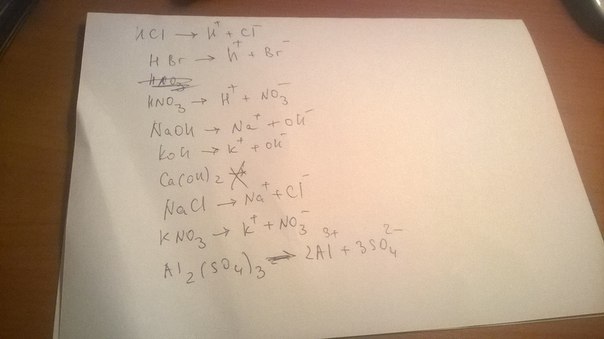 HCl → H⁺ + Cl⁻
HBr → H⁺ + Br⁻
HNO₃
HNO₃ → H⁺ + NO₃⁻
NaOH → Na⁺ + OH⁻
KOH → K⁺ + OH⁻
Ca(OH)₂ ↛
NaCl → Na⁺ + Cl⁻
KNO₃ → K⁺ + NO₃⁻
Al₂(SO₄)₃ → 2Al³⁺ + 3SO₄²⁻